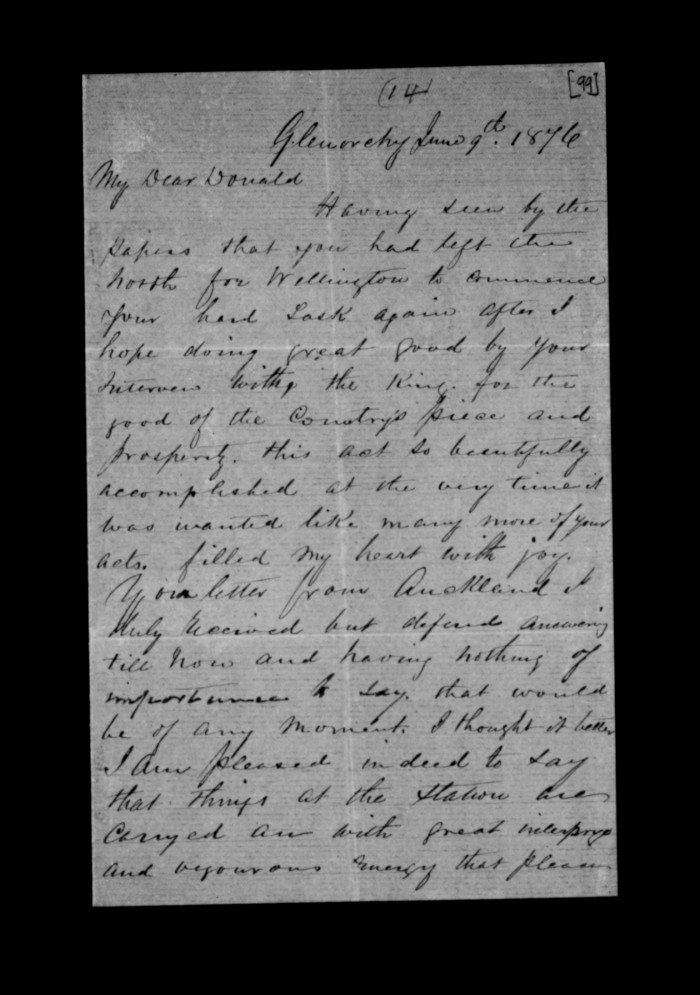 (14)
[99]
Glenorchy June 9th. 1876
My Dear Donald
Having seen by the
papers that you had left the
North for Wellington to commence
your hard Task again after I
hope doing great good by your
Interview with the King. for the
good of the Country's piece and
prosperity. this act so beautifully
accomplished at the very time it
was wanted like many more of your
acts. filled my heart with joy.
Your letter from Auckland I
duly Received but defered answering
till Now and having nothing of
importance to say. that would
be of any Moment. I thought it better
I am pleased indeed to say
that things at the Station are
Carryed on with great
and vigourous Energy that please